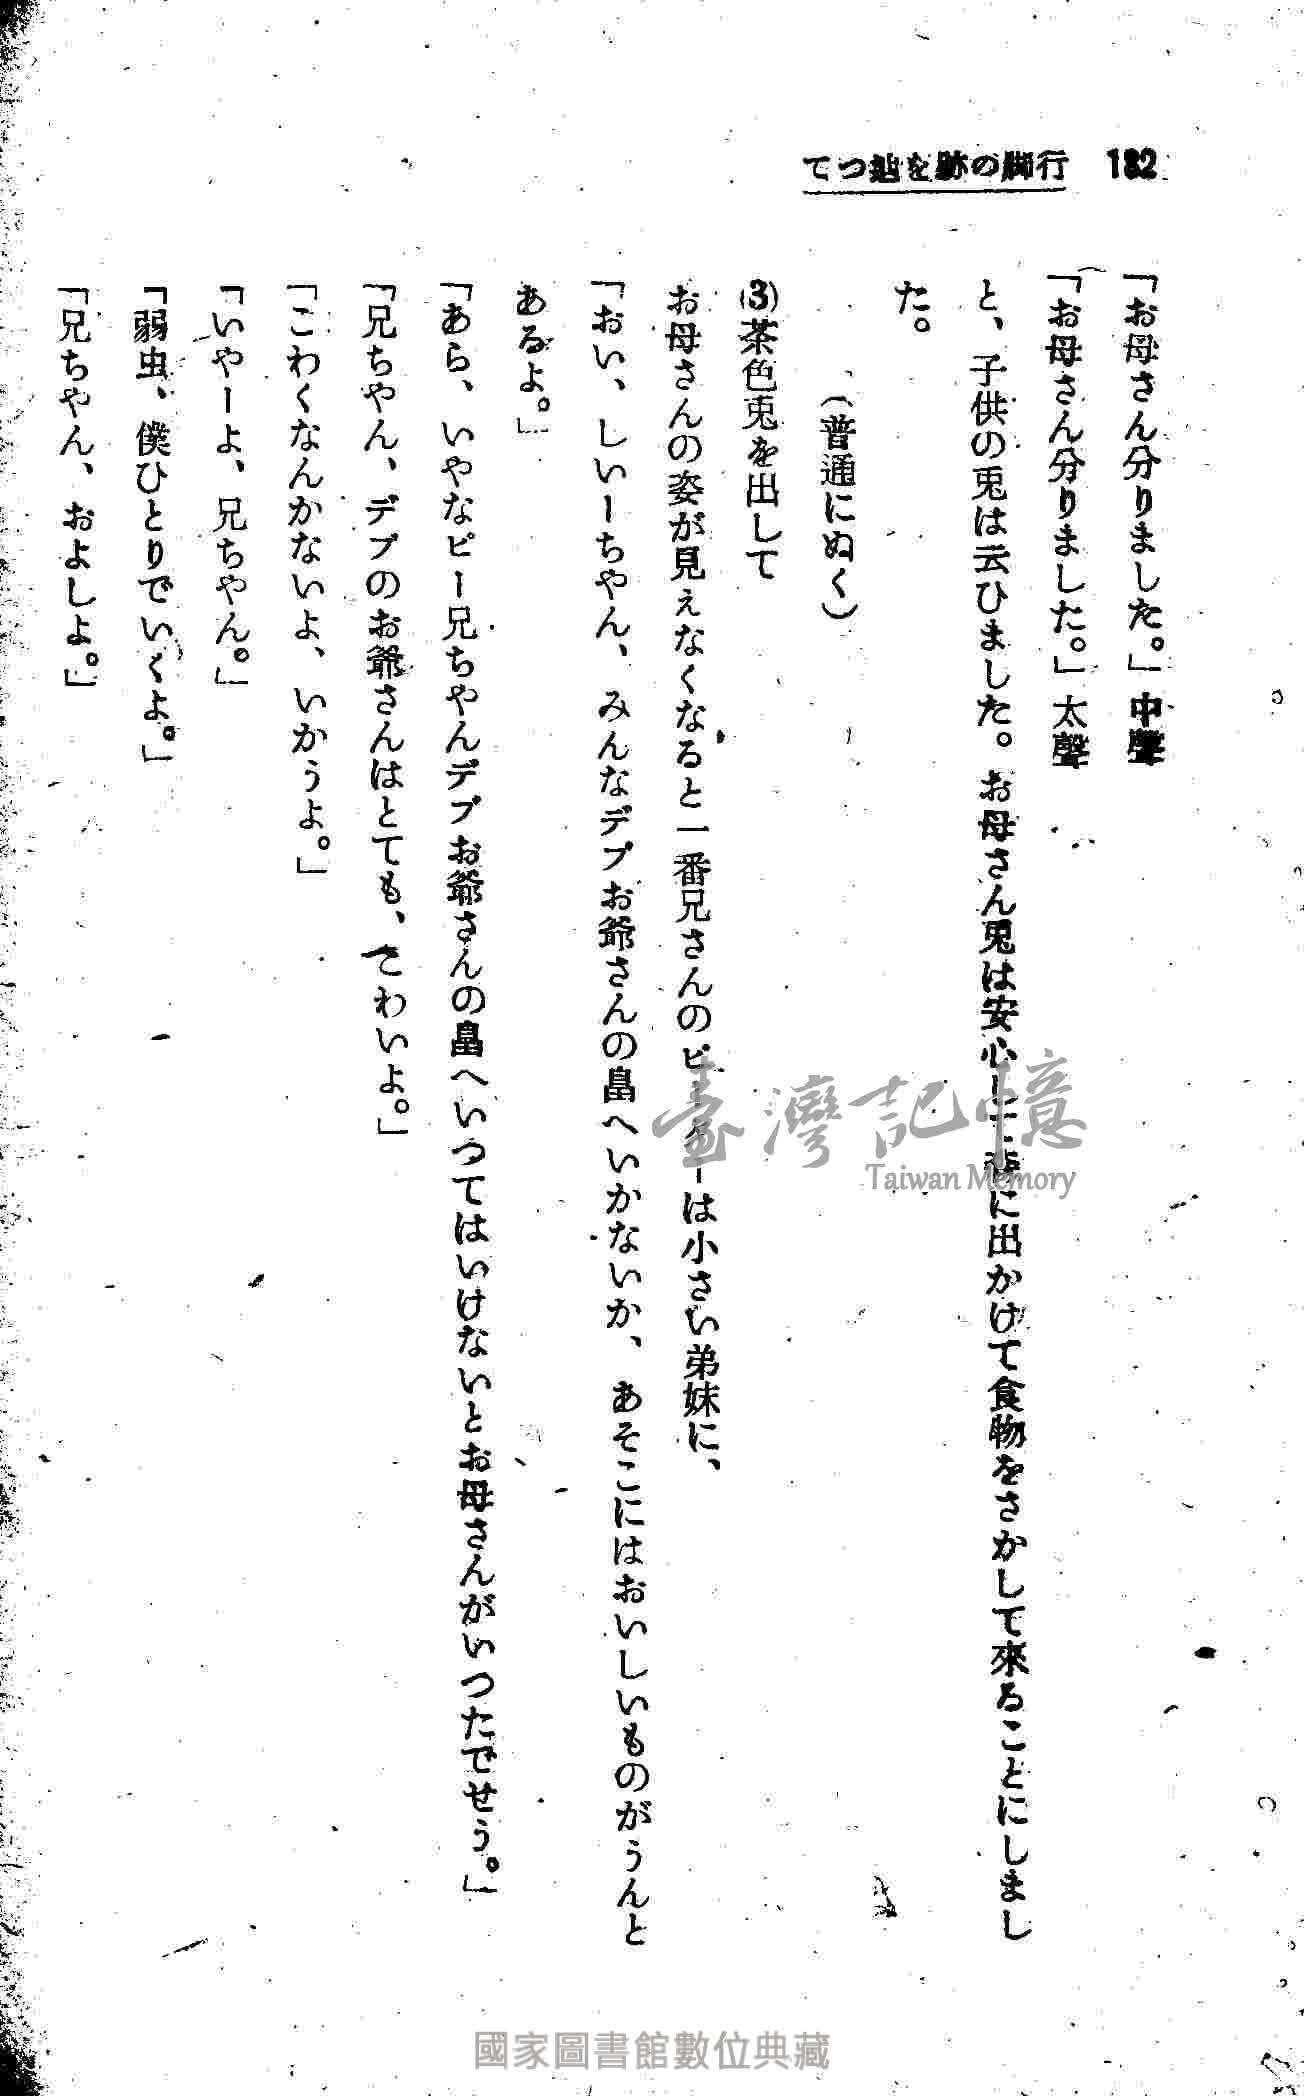 てつ辿を跡の脚行 182
「お母さん分りました。」中聲
「お母さん分りました。」太聲
と、子供の兎は云ひました。お母さん兎は安心して に出かけて食物をさかして來ることにしまし
た。
(普通にぬく)
(3)茶色兎を出して
お母さんの姿が見えなくなると一番兄さんのピーターは小さい弟妹に、
「おい、しいーちやん、みんなデブお爺さんの畠へいかないか、あそこにはおいしいものがうんと
あるよ。」
「あら、いやなピー兄ちやんデブお爺さんの畠へいつてはいけないとお母さんがいつたでせう。」
「兄ちやん、デブのお爺さんはとても、こわいよ。」
「こわくなんかないよ、いかうよ。」
「いやーよ、兄ちやん。」
「弱虫、僕ひとりでいくよ。」
「兄ちやん、およしよ。」
臺灣記憶
Taiwan Memory
國家圖書館數位典藏